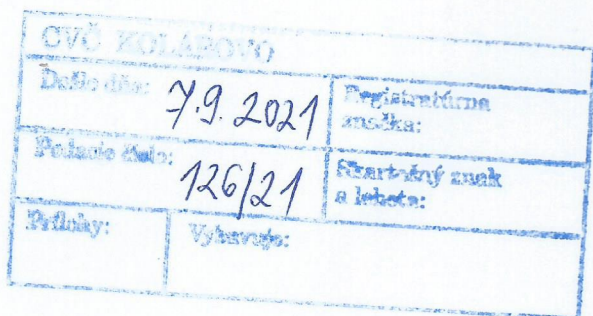 CVČ KOLÁROVO
Došlo dňa: 7.9.2021
Registratúrna
značka:
Podacie číslo: 126/21
Skartačný znak
a lehota:
Prílohy:
Vybavuje: